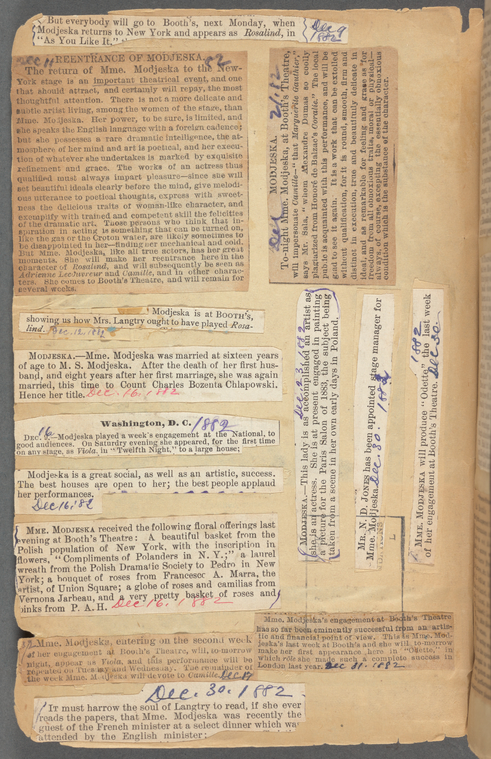 But everybody will go to Booth's, next Monday, when
Modjeska returns to New York and appears as Rosalind, in
"As You Like It,"
Dec 9
1882
Dec 11
82
REENTRANCE OF MODJESKA.
The return of Mme. Modjeska to the New-
York stage is an important theatrical event, and one
that should attract, and certainly will repay, the most
thoughtful attention. There is not a more delicate and
subtle artist living, among the women of the stage, than
Mme. Modjeska. Her power, to be sure, is limited, and
she speaks the English language with a foreign cadence;
but she possesses a rare dramatic intelligence, the at-
mosphere of her mind and art is poetical, and her execu-
tion of whatever she undertakes is marked by exquisite
refinement and grace. The works of an actress thus
qualified must always impart pleasure—since she will
set beautiful ideals clearly before the mind, give melodi-
ous utterance to poetical thoughts, express with sweet-
ness the delicious traits of woman-like character, and
exemplify with trained and competent skill the felicities
of the dramatic art. Those persons who think that in-
spiration in acting is something that can be turned on,
like the gas or the Croton water, are likely sometimes to
be disappointed in her—finding her mechanical and cold.
But Mme. Modjeska, like all true actors, has her great
moments. She will make her reentrance here in the
character of Rosalind, and will subsequently be seen as
Adrienne Lecouvreur and Camille, and in other charac-
ters. She comes to Booth's Theatre, and will remain for
several weeks.
Dec 21/82
MODJESKA.
To-night Mme. Modjeska, at Booth's Theatre,
will impersonate Camille—"that Marguerite Gauthier,"
says Mr. Sala, "whom Alexandre Dumas so coolly
plagiarized from Honoré de Balzac's Coralie." The local
public is acquainted with this performance, and will be
glad to see it again. It is a work that can be extolled
without qualification, for it is round, smooth, firm and
distinct in execution, true and beautifully delicate in
ideal, and as remarkable for feeling and grace as for
freedom from all obnoxious traits, moral or physical—
always, of course, excepting the essentially obnoxious
condition which is the substance of the character.
Modjeska is at BOOTH'S,
showing us how Mrs. Langtry ought to have played Rosa-
lind. Dec. 12. 1882
MODJESKA.—Mme. Modjeska was married at sixteen years
of age to M. S. Modjeska. After the death of her first hus-
band, and eight years after her first marriage, she was again
married, this time to Count Charles Bozenta Chlapowski.
Hence her title. Dec. 16. 1882
Washington, D. C. 1882
DEC. 16.—Modjeska played a week's engagement at the National, to
good audiences. On Saturday evening she appeared, for the first time
on any stage, as Viola, in "Twelfth Night," to a large house;
Modjeska is a great social, as well as an artistic, success.
The best houses are open to her; the best people applaud
her performances.
Dec 16. '82
MME. MODJESKA received the following floral offerings last
evening at Booth's Theatre: A beautiful basket from the
Polish population of New York, with the inscription in
flowers, "Compliments of Polanders in N. Y.;" a laurel
wreath from the Polish Dramatic Society to Pedro in New
York; a bouquet of roses from Francesc A. Marra, the
artist, of Union Square; a globe of roses and camilias from
Vernona Jarbeau, and a very pretty basket of roses and
pinks from P. A. H. Dec. 16. 1882
MODJESKA.—This lady is as accomplished an artist as
she is an actress. She is at present engaged in painting
a picture for the Paris Salon of 1883, the subject being
taken from a scene in her own early days in Poland.
MR. N. D. JONES has been appointed stage manager for
Mme. Modjeska. Dec 30. 1882
MME. MODJESKA will produce "Odette," the last week
of her engagement at Booth's Theatre. Dec 30.
1882
Mme. Modjeska, entering on the second week
of her engagement at Booth's Theatre, will, to-morrow
night, appear as Viola, and this performance will be
repeated on Tuesday and Wednesday. The remainder of
the week Mme. Modjeska will devote to Camille.
Mme. Modjeska's engagement at Booth's Theatre
has so far been eminently successful from an artis-
tic and financial point of view. This is Mme. Mod-
jeska's last week at Booth's and she will to-morrow
make her first appearance here in "Odette," in
which rôle she made such a complete success in
London last year. Dec 31. 1882.
Dec. 30. 1882
IT must harrow the soul of Langtry to read, if she ever
reads the papers, that Mme. Modjeska was recently the
guest of the French minister at a select dinner which was
attended by the English minister;